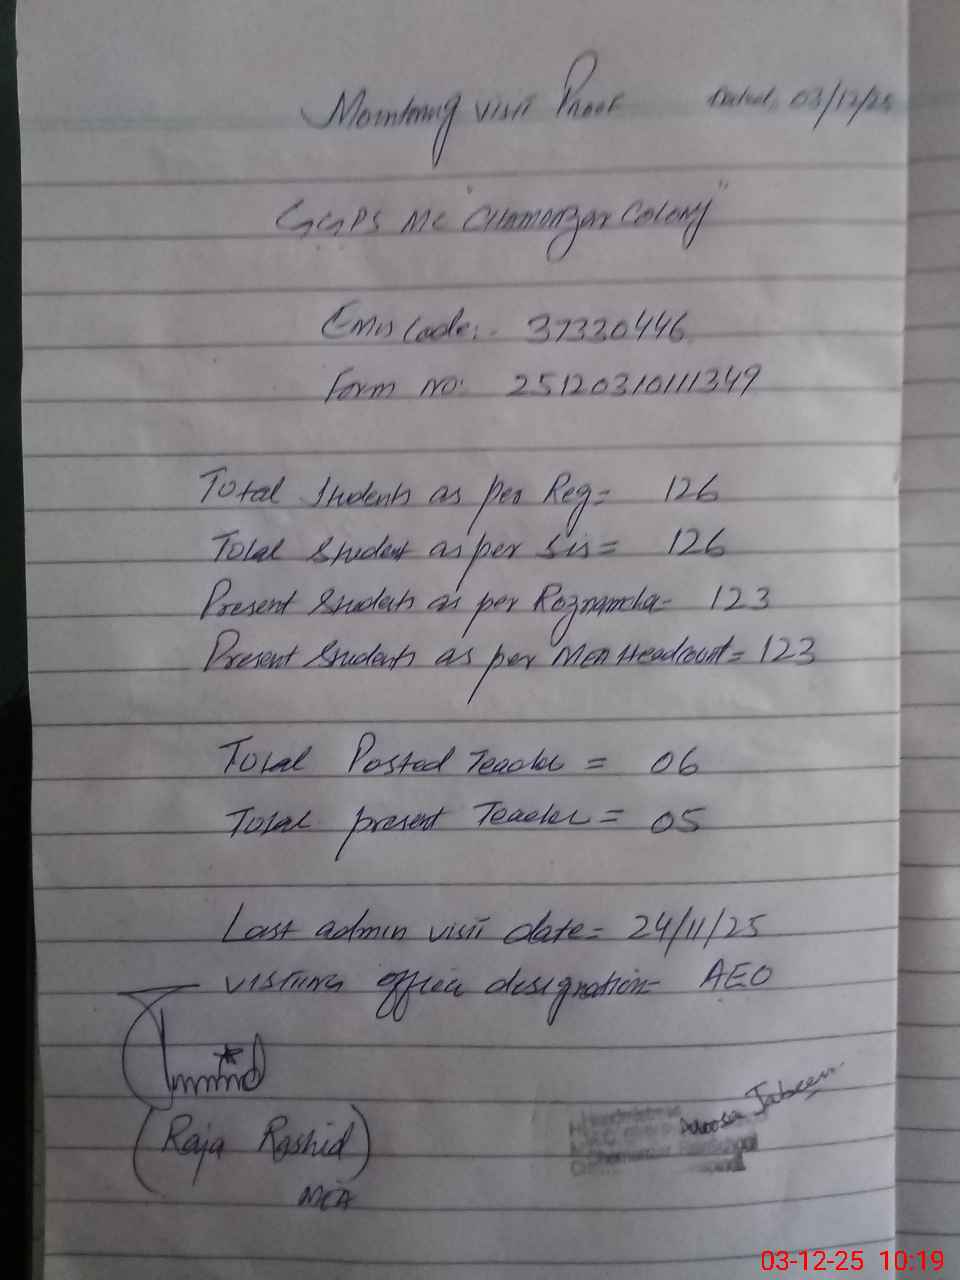 Monitoring visit Proof Dated, 03/12/25
GGPS MC "Chamanzar Colony"
Emis Code:- 37330446
Form no: 25120310111349
Total Students as per Reg= 126
Total Student as per Sis= 126
Present Students as per Roznamcha- 123
Present Students as per MEA Headcount= 123
Total Posted Teacher = 06
Total present Teacher= 05
Last admin visit date= 24/11/25
visiting officer designation- AEO
(Raja Rashid)
MEA
Jabeen
03-12-25 10:19